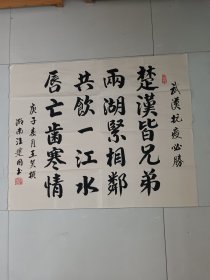 武漢抗疫必勝
楚漢皆兄弟
兩湖緊相鄰
共飲一江水
唇亡齒寒情
庚子春月王笑撰
湖南汪楚朝书